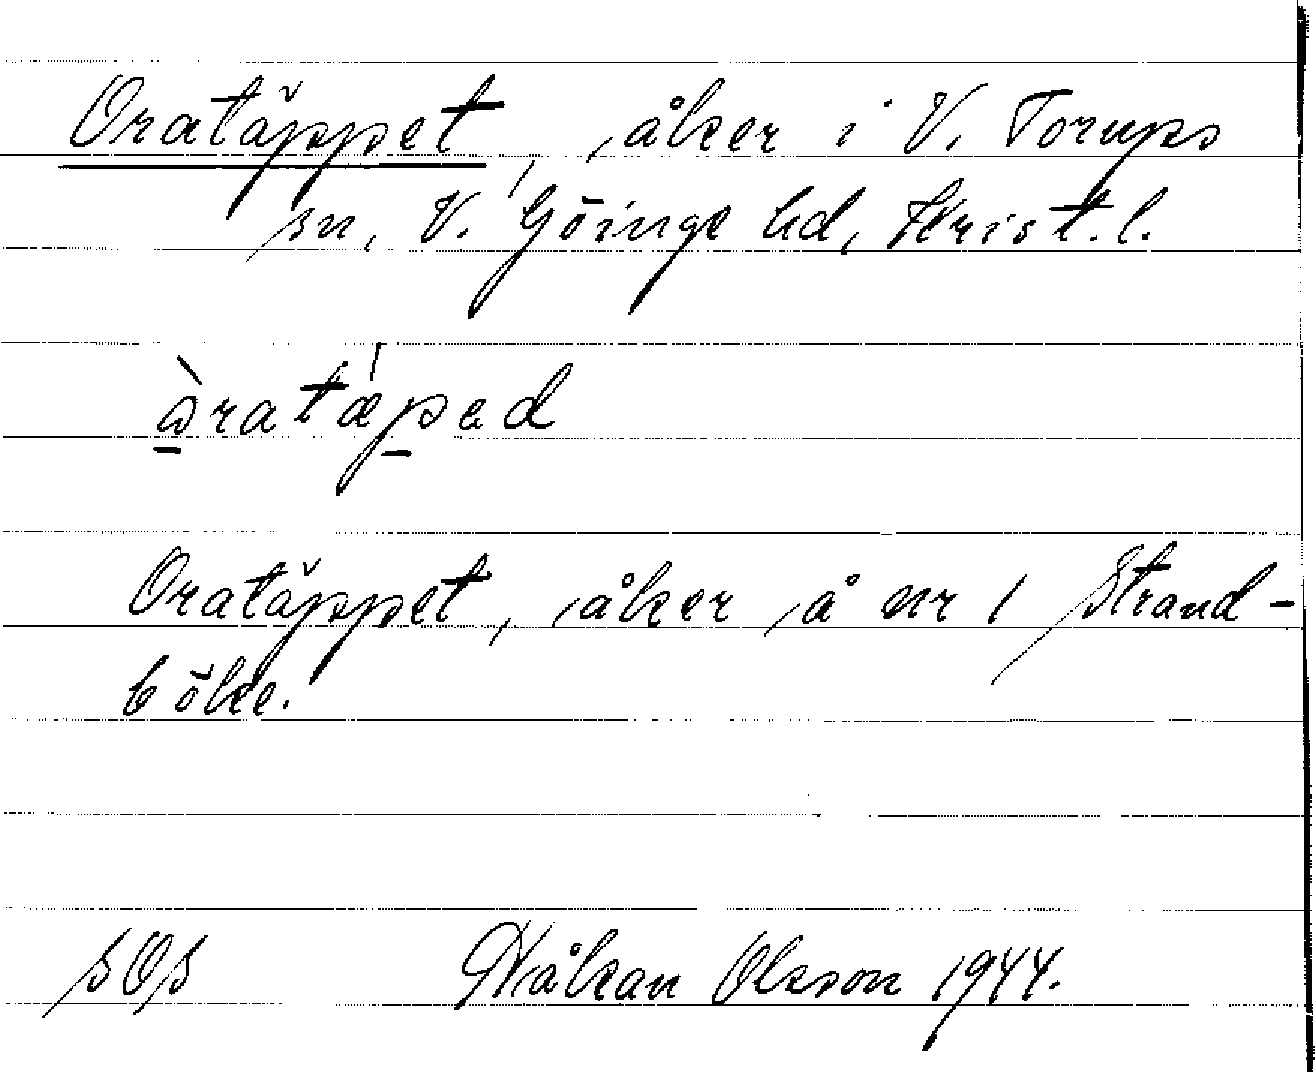 Oratäppet, åker i V. Torups
sn, V. Göinge hd, Krist. l.
òratǽpad
Oratäppet, åker å nr 1 Strand-
böke.
sOs Håkan Olsson 1944.